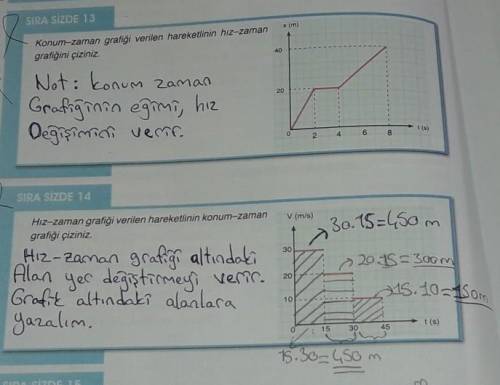 SIRA SİZDE 13
Konum–zaman grafiği verilen hareketlinin hız–zaman
grafiğini çiziniz.
Not: konum zaman
Grafiğinin eğimi, hız
Değişimini verir.
x (m)
40
20
0 2 4 6 8 t (s)
SIRA SİZDE 14
Hız–zaman grafiği verilen hareketlinin konum–zaman
grafiği çiziniz.
Hız-zaman grafiği altındaki
Alan yer değiştirmeyi verir.
Grafik altındaki alanlara
yazalım.
V (m/s)
30.15=450 m
30
20.15=300m
20
15.10=150m
10
0 15 30 45 t (s)
15.30=450 m